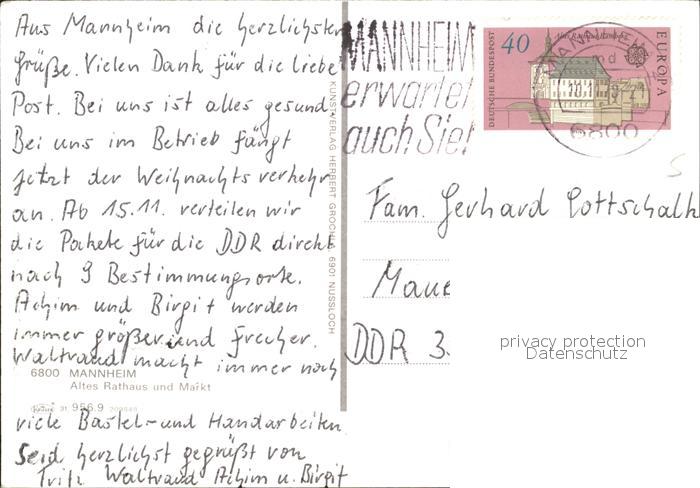 Aus Mannheim die herzlichsten
Grüße. Vielen Dank für die liebe
Post. Bei uns ist alles gesund
Bei uns im Betrieb fängt
jetzt der Weihnachtsverkehr
an. Ab 15.11. verteilen wir
die Pakete für die DDR direkt
nach 9 Bestimmungsorte.
Achim und Birgit werden
immer größer und frecher.
Waltraud macht immer noch
6800 MANNHEIM
Altes Rathaus und Markt
31 956.9
viele Bastel- und Handarbeiten
Seid herzlichst gegrüßt von
Fritz Waltraud Achim u. Birgit
KUNSTVERLAG HERBERT GROCHE, 6901 NUSSLOCH
MANNHEIM
erwartet
auch Sie!
DEUTSCHE BUNDESPOST
40
EUROPA
6800
Fam. Gerhard Gottschalk
Maue
DDR 3
privacy protection
Datenschutz